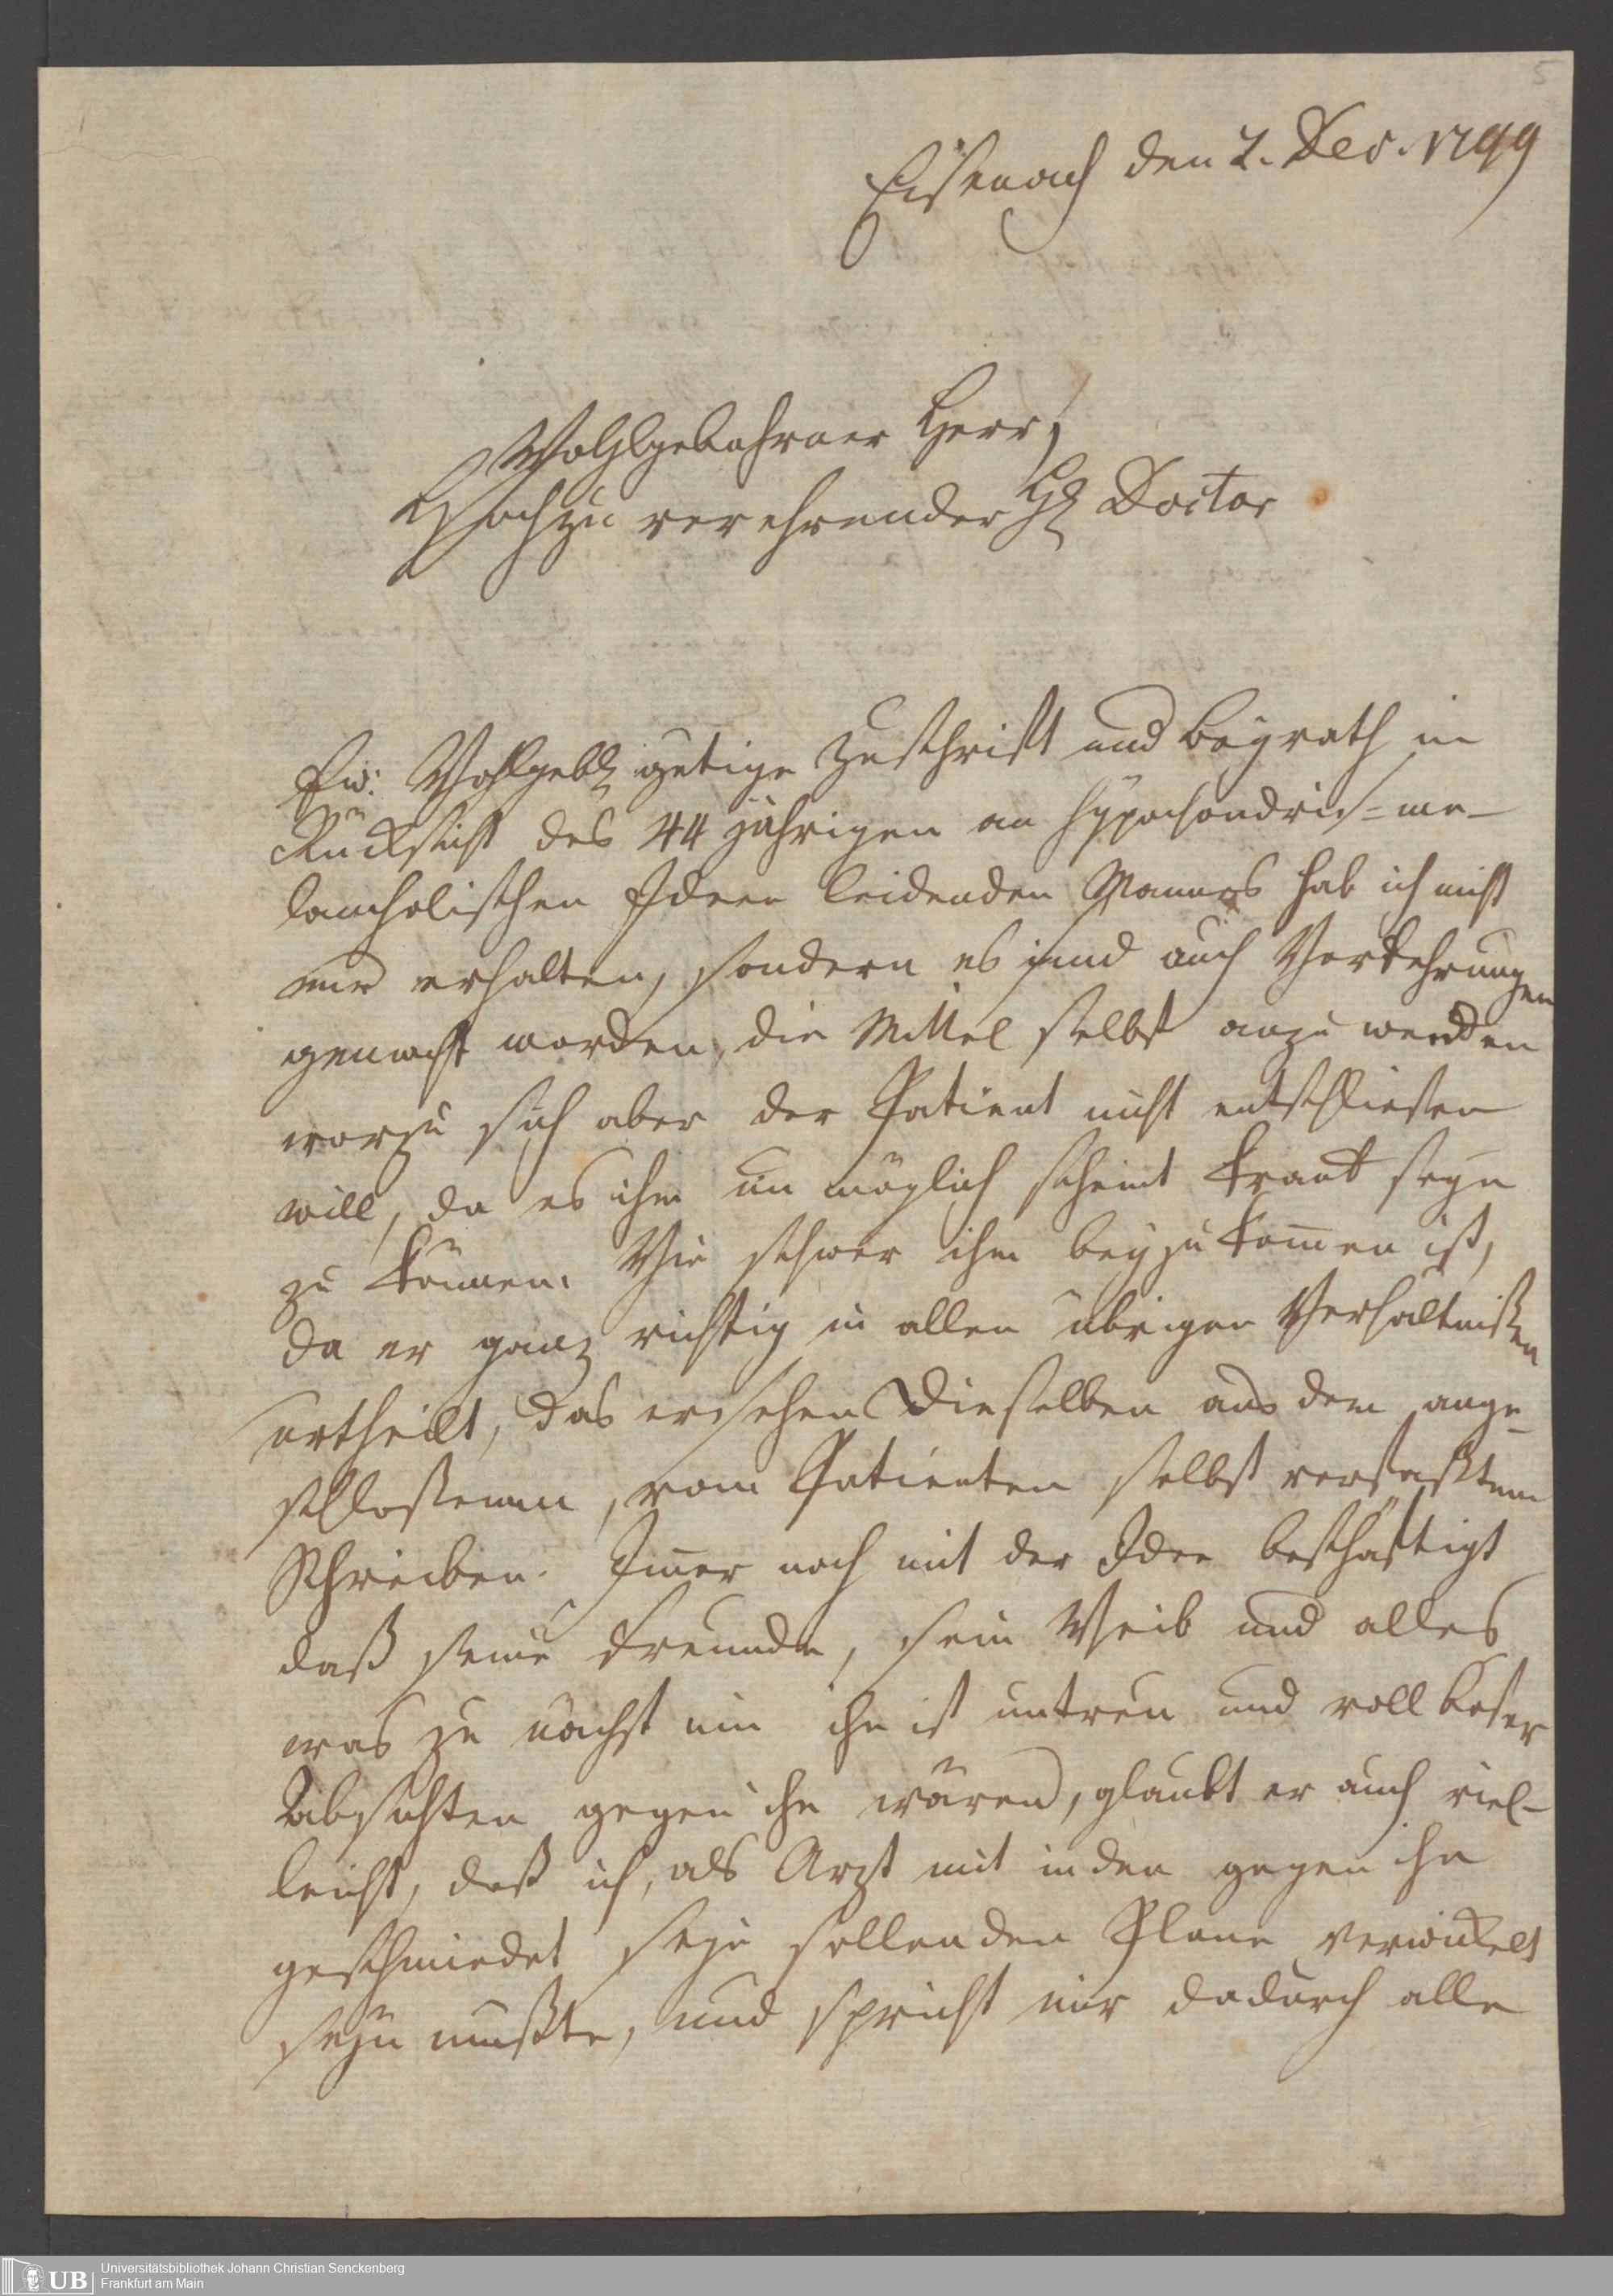 5
Eisenach den 2. Dec. 1799
Wohlgebohrner Herr,
Hochzu verehrender H Doctor
Ew: Wohlgeb gutige Zuschrift und Beyrath in
Rücksicht des 44 jährigen an hypochondrisch=me-
lancholischen Ideen leidenden Mannes hab ich nicht
nur erhalten, sondern es sind auch Vorkehrungen
gemacht worden, die Mittel selbst anzu wenden
worzu sich aber der Patient nicht entschliesen
will, da es ihm un möglich scheint krank seyn
zu können. Wie schwer ihm beyzukom̅en ist,
da er ganz richtig in allen übrigen Verhältnißen
urtheilt, das ersehen Dieselben aus dem ange-
schloßenen, vom Patienten selbst verfaßtem
Schreiben. Im̅er noch mit der Idee beschäftigt
daß seine Freunde, sein Weib und alles
was zu nächst um ihn ist untreu und voll böser
Absichten gegen ihn wären, glaubt er auch viel-
leicht, daß ich, als Arzt mit in den gegen ihn
geschmiedet seyn sollenden Plane verwikelt
seyn mußte, und spricht mir dadurch alle
Universitätsbibliothek Johann Christian Senckenberg
UB Frankfurt am Main